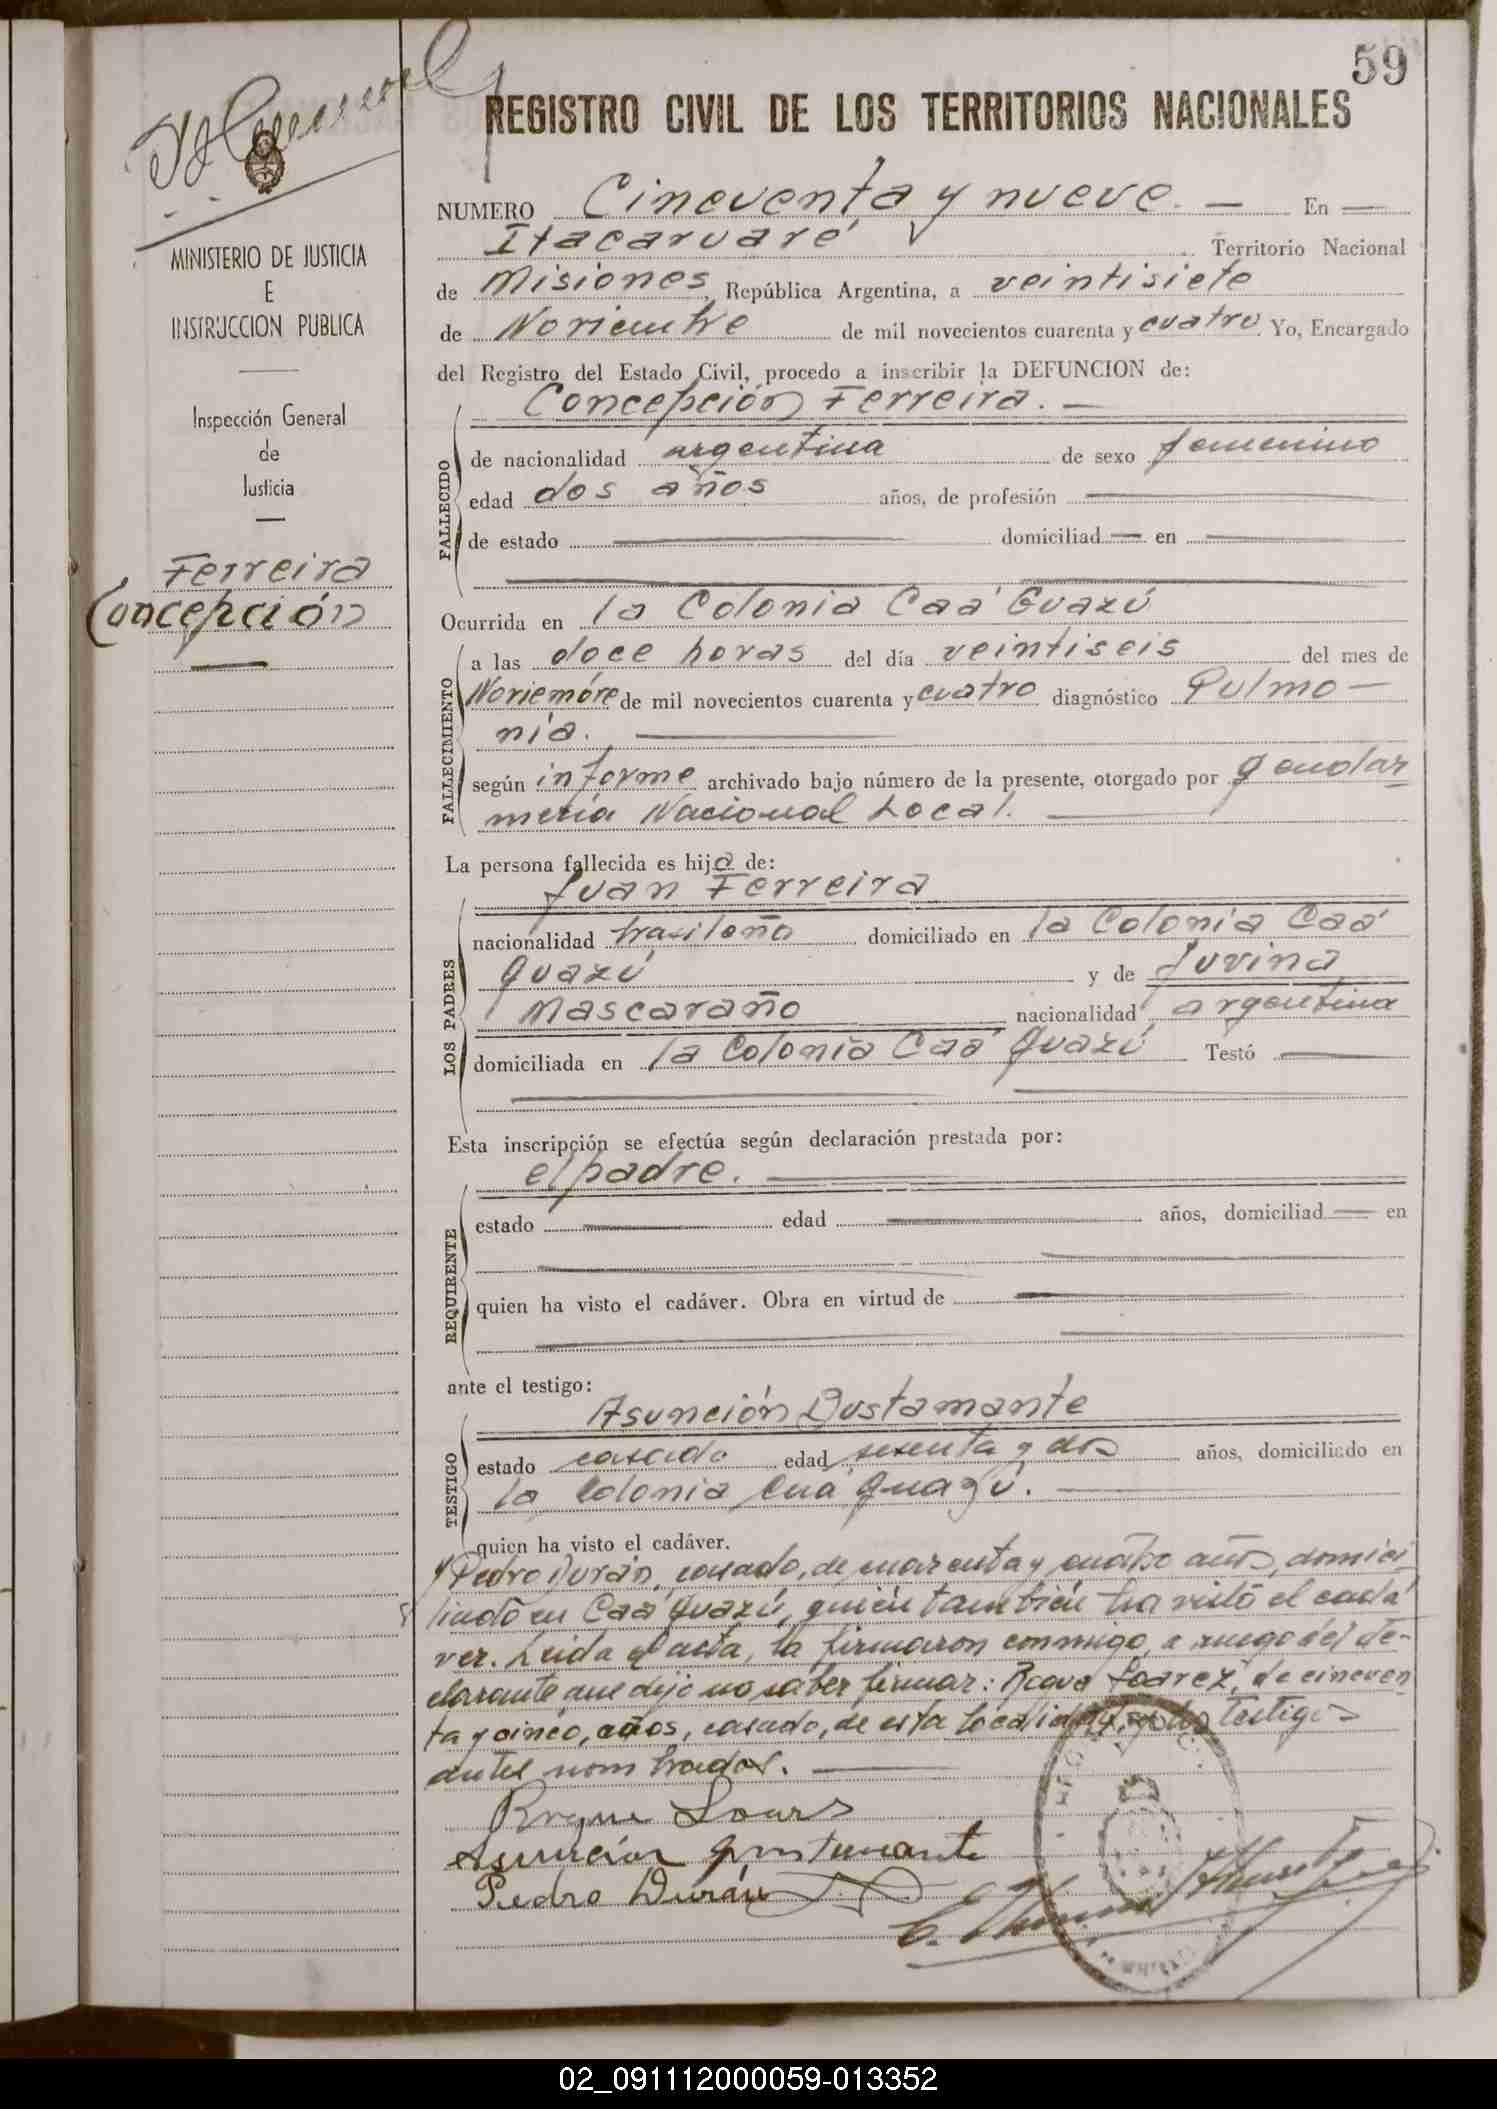 59
REGISTRO CIVIL DE LOS TERRITORIOS NACIONALES
MINISTERIO DE JUSTICIA
E
INSTRUCCION PUBLICA
Inspección General
de
Justicia
Ferreira
Concepción
NUMERO Cincuenta y nueve. — En —
Itacaruaré Territorio Nacional
de Misiones, República Argentina, a veintisiete
de Noviembre de mil novecientos cuarenta y cuatro Yo, Encargado
del Registro del Estado Civil, procedo a inscribir la DEFUNCION de:
Concepción Ferreira. —
FALLECIDO
de nacionalidad argentina de sexo femenino
edad dos años años, de profesión —
de estado — domiciliad — en —
Ocurrida en la Colonia Caá Guazú
FALLECIMIENTO
a las doce horas del día veintiseis del mes de
Noviembre de mil novecientos cuarenta y cuatro diagnóstico Pulmo-
nía. —
según informe archivado bajo número de la presente, otorgado por gendar
mería Nacional Local. —
La persona fallecida es hija de:
Juan Ferreira
LOS PADRES
nacionalidad brasileña domiciliado en la Colonia Caá
guazú y de Juvina
Mascaraño nacionalidad argentina
domiciliada en la Colonia Caá guazú Testó —
Esta inscripción se efectúa según declaración prestada por:
el padre. —
REQUIRENTE
estado — edad — años, domiciliad — en
quien ha visto el cadáver. Obra en virtud de —
ante el testigo:
Asunción Bustamante
TESTIGO
estado casado edad sesenta y dos años, domiciliado en
la Colonia Caá guazú. —
quien ha visto el cadáver.
y Pedro Durán, casado, de cuarenta y cuatro años, domici
liado en Caá guazú, quien también ha visto el cadá
ver. Leida el acta, la firmaron conmigo, a ruego del de-
clarante que dijo no saber firmar: Soarez, de cincuen
ta y cinco, años, casado, de esta localidad, y los testigos
antes nombrados. —
Asunción
Pedro Durán
02_091112000059-013352